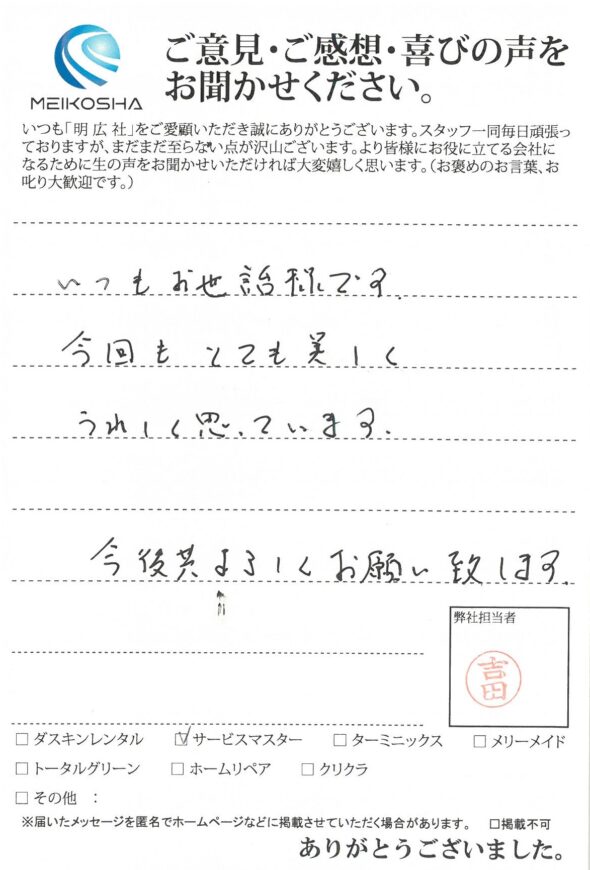 MEIKOSHA
ご意見・ご感想・喜びの声を
お聞かせください。
いつも「明広社」をご愛顧いただき誠にありがとうございます。スタッフ一同毎日頑張っ
ておりますが、まだまだ至らない点が沢山ございます。より皆様にお役に立てる会社に
なるために生の声をお聞かせいただければ大変嬉しく思います。（お褒めのお言葉、お
叱り大歓迎です。）
いつもお世話様です.
今回もとても美しく
うれしく思っています.
今後共よろしくお願い致します.
弊社担当者
吉田
□ ダスキンレンタル ☑ サービスマスター □ ターミニックス □ メリーメイド
□ トータルグリーン □ ホームリペア □ クリクラ
□ その他 ：
※届いたメッセージを匿名でホームページなどに掲載させていただく場合があります。 □掲載不可
ありがとうございました。